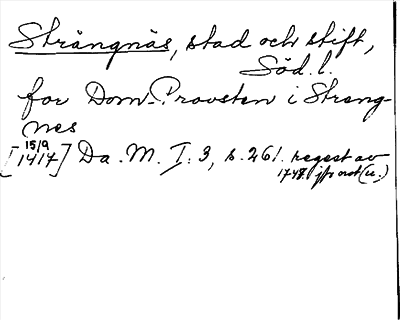 Strängnäs, stad och stift,
Söd. l.
for Dom-Provsten i Streng-
nes
[15/9 1417] Da. M. I. 3, s. 261. regest av
1748. jfr not (u.)